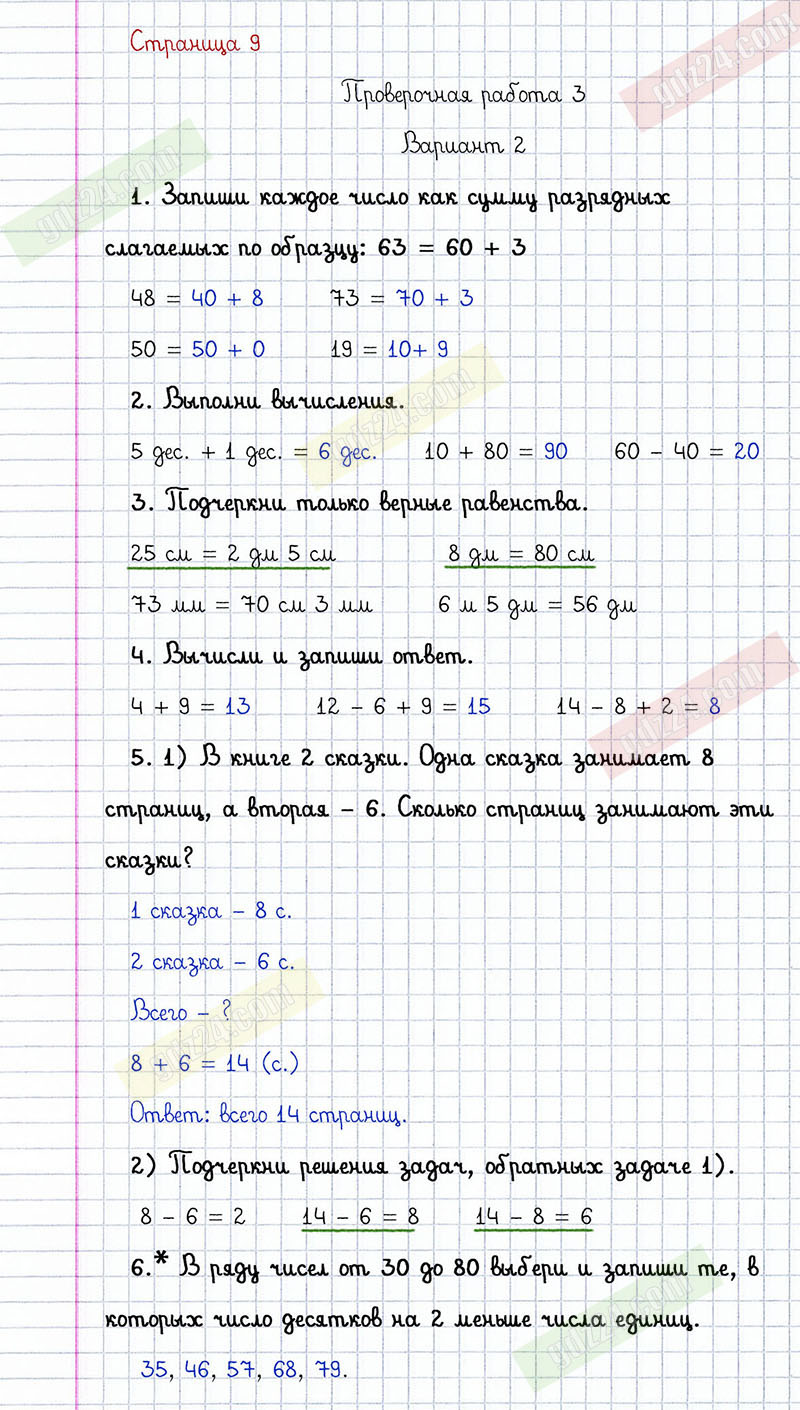 Страница 9
gdz24.com
Проверочная работа 3
Вариант 2
gdz24.com
1. Запиши каждое число как сумму разрядных
слагаемых по образцу: 63 = 60 + 3
48 = 40 + 8 73 = 70 + 3
50 = 50 + 0 19 = 10+ 9
gdz24.com
2. Выполни вычисления.
5 дес. + 1 дес. = 6 дес. 10 + 80 = 90 60 - 40 = 20
3. Подчеркни только верные равенства.
25 см = 2 дм 5 см 8 дм = 80 см
73 мм = 70 см 3 мм 6 м 5 дм = 56 дм
4. Вычисли и запиши ответ.
gdz24.com
4 + 9 = 13 12 - 6 + 9 = 15 14 - 8 + 2 = 8
5. 1) В книге 2 сказки. Одна сказка занимает 8
страниц, а вторая - 6. Сколько страниц занимают эти
сказки?
1 сказка - 8 с.
2 сказка - 6 с.
Всего - ?
gdz24.com
8 + 6 = 14 (с.)
Ответ: всего 14 страниц.
2) Подчеркни решения задач, обратных задаче 1).
8 - 6 = 2 14 - 6 = 8 14 - 8 = 6
6.* В ряду чисел от 30 до 80 выбери и запиши те, в
которых число десятков на 2 меньше числа единиц.
gdz24.com
35, 46, 57, 68, 79.